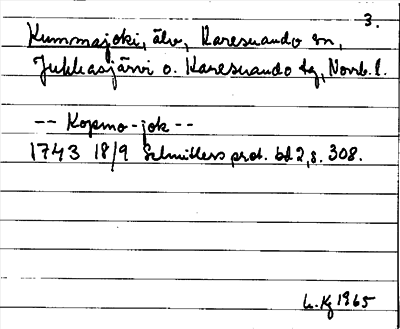 3.
Kummajoki, älv, Karesuando sn,
Jukkasjärvi o. Karesuando tg, Norrb. l.
-- Kopmo-jok --
1743 18/9 Schnitlers prot. bd 2, s. 308.
L. Kg 1965